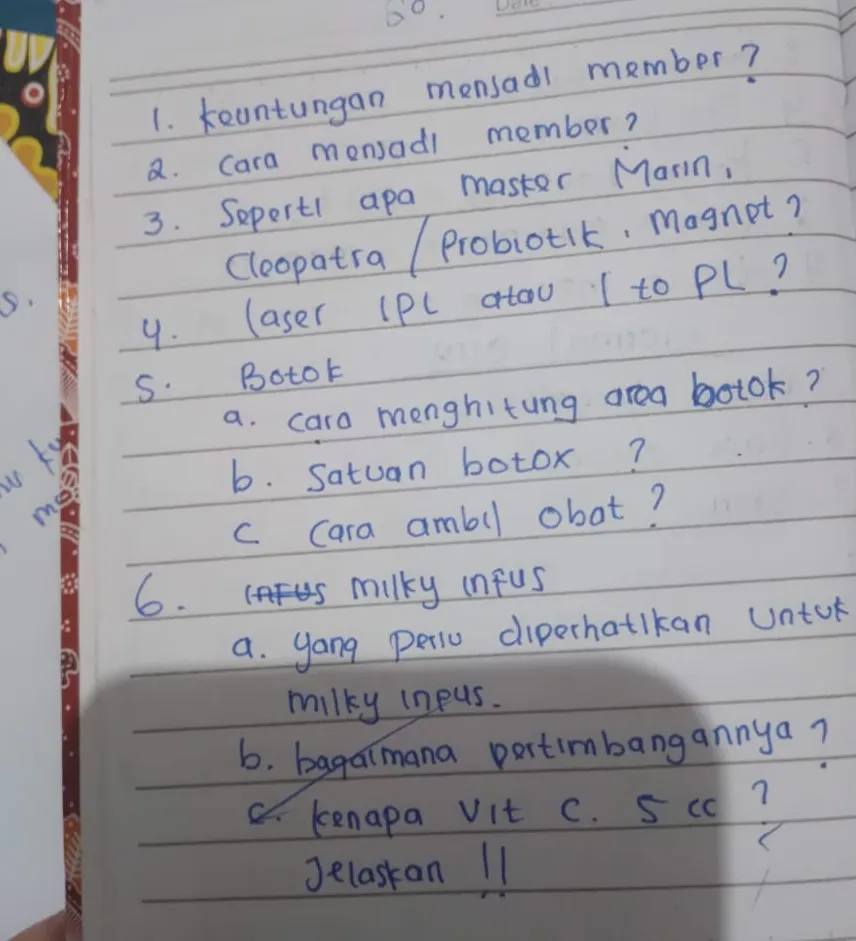 60. Date
1. keuntungan menjadi member?
2. cara menjadi member?
3. Seperti apa masker Marin,
Cleopatra / Probiotik, Magnet?
4. laser IPL atau I to PL?
5. Botok
a. cara menghitung area botok?
b. Satuan botox ?
c Cara ambil obat?
6. infus milky infus
a. yang perlu diperhatikan Untuk
milky infus.
b. bagaimana pertimbangannya?
c. kenapa Vit C. 5 cc ?
Jelaskan !!